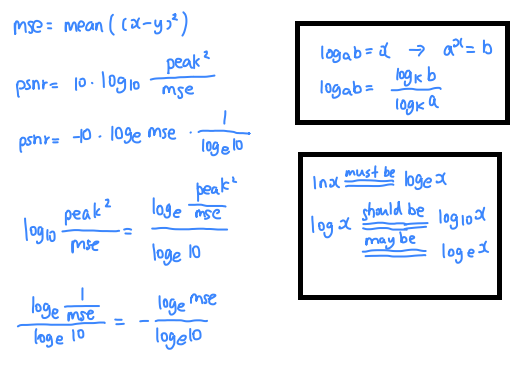 mse= mean((x-y)²)
psnr= 10 · log₁₀ peak²/mse
psnr= -10 · logₑ mse · 1/logₑ10
log₁₀ peak²/mse = logₑ peak²/mse / logₑ 10
logₑ 1/mse / logₑ 10 = - logₑ mse / logₑ10
logₐb = x → aˣ = b
logₐb = logₖ b / logₖ a
lnx must be logₑx
log x should be log₁₀x
may be logₑx